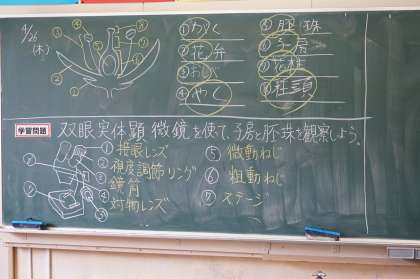 4/26
(木)
① がく
② 花弁
③ おしべ
④ やく
⑤ 胚珠
⑥ 子房
⑦ 花柱
⑧ 柱頭
学習問題
双眼実体顕微鏡を使って、子房と胚珠を観察しよう。
① 接眼レンズ
② 視度調節リング
③ 鏡筒
④ 対物レンズ
⑤ 微動ねじ
⑥ 粗動ねじ
⑦ ステージ